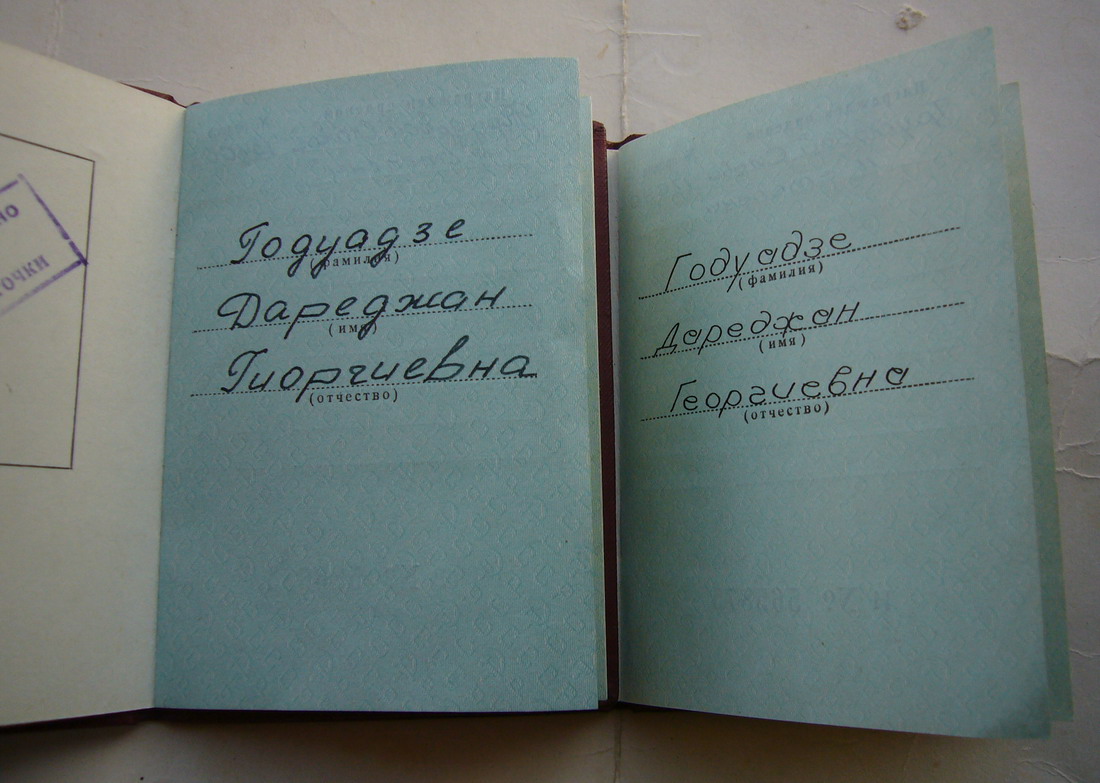 но
точки
Годуадзе
(фамилия)
Дареджан
(имя)
Гиоргиевна
(отчество)
Годуадзе
(фамилия)
Дареджан
(имя)
Георгиевна
(отчество)